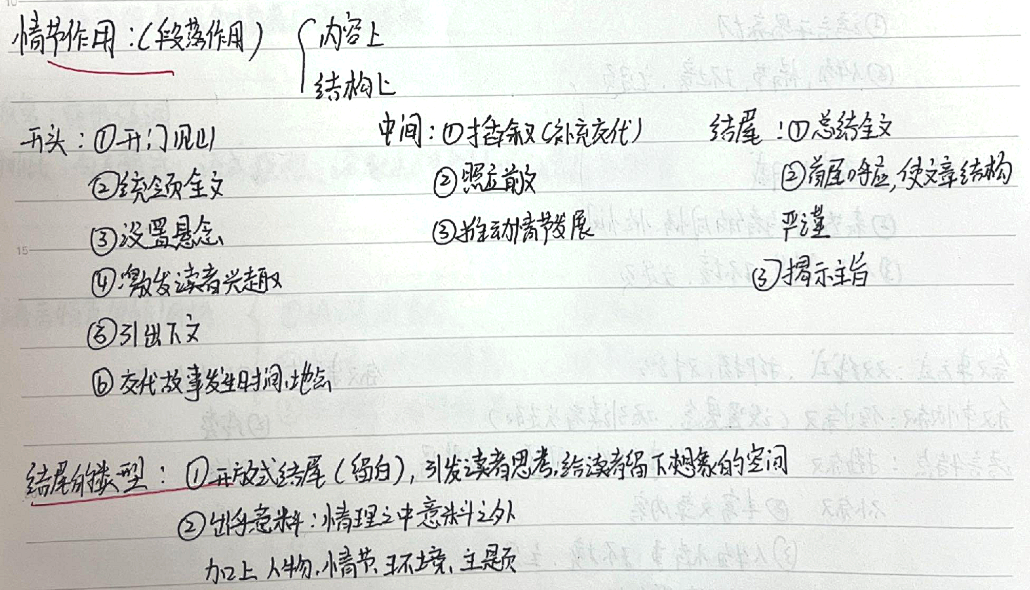 情节作用：（段落作用） { 内容上
结构上
开头：①开门见山 中间：①插叙（补充交代） 结尾：①总结全文
②统领全文 ②照应前文 ②首尾呼应，使文章结构
③设置悬念 ③推动情节发展 严谨
④激发读者兴趣 ③揭示主旨
⑤引出下文
⑥交代故事发生时间、地点
结尾的类型：①开放式结尾（留白），引发读者思考，给读者留下想象的空间
②出乎意料：情理之中意料之外
加上 人物、情节、环境、主题